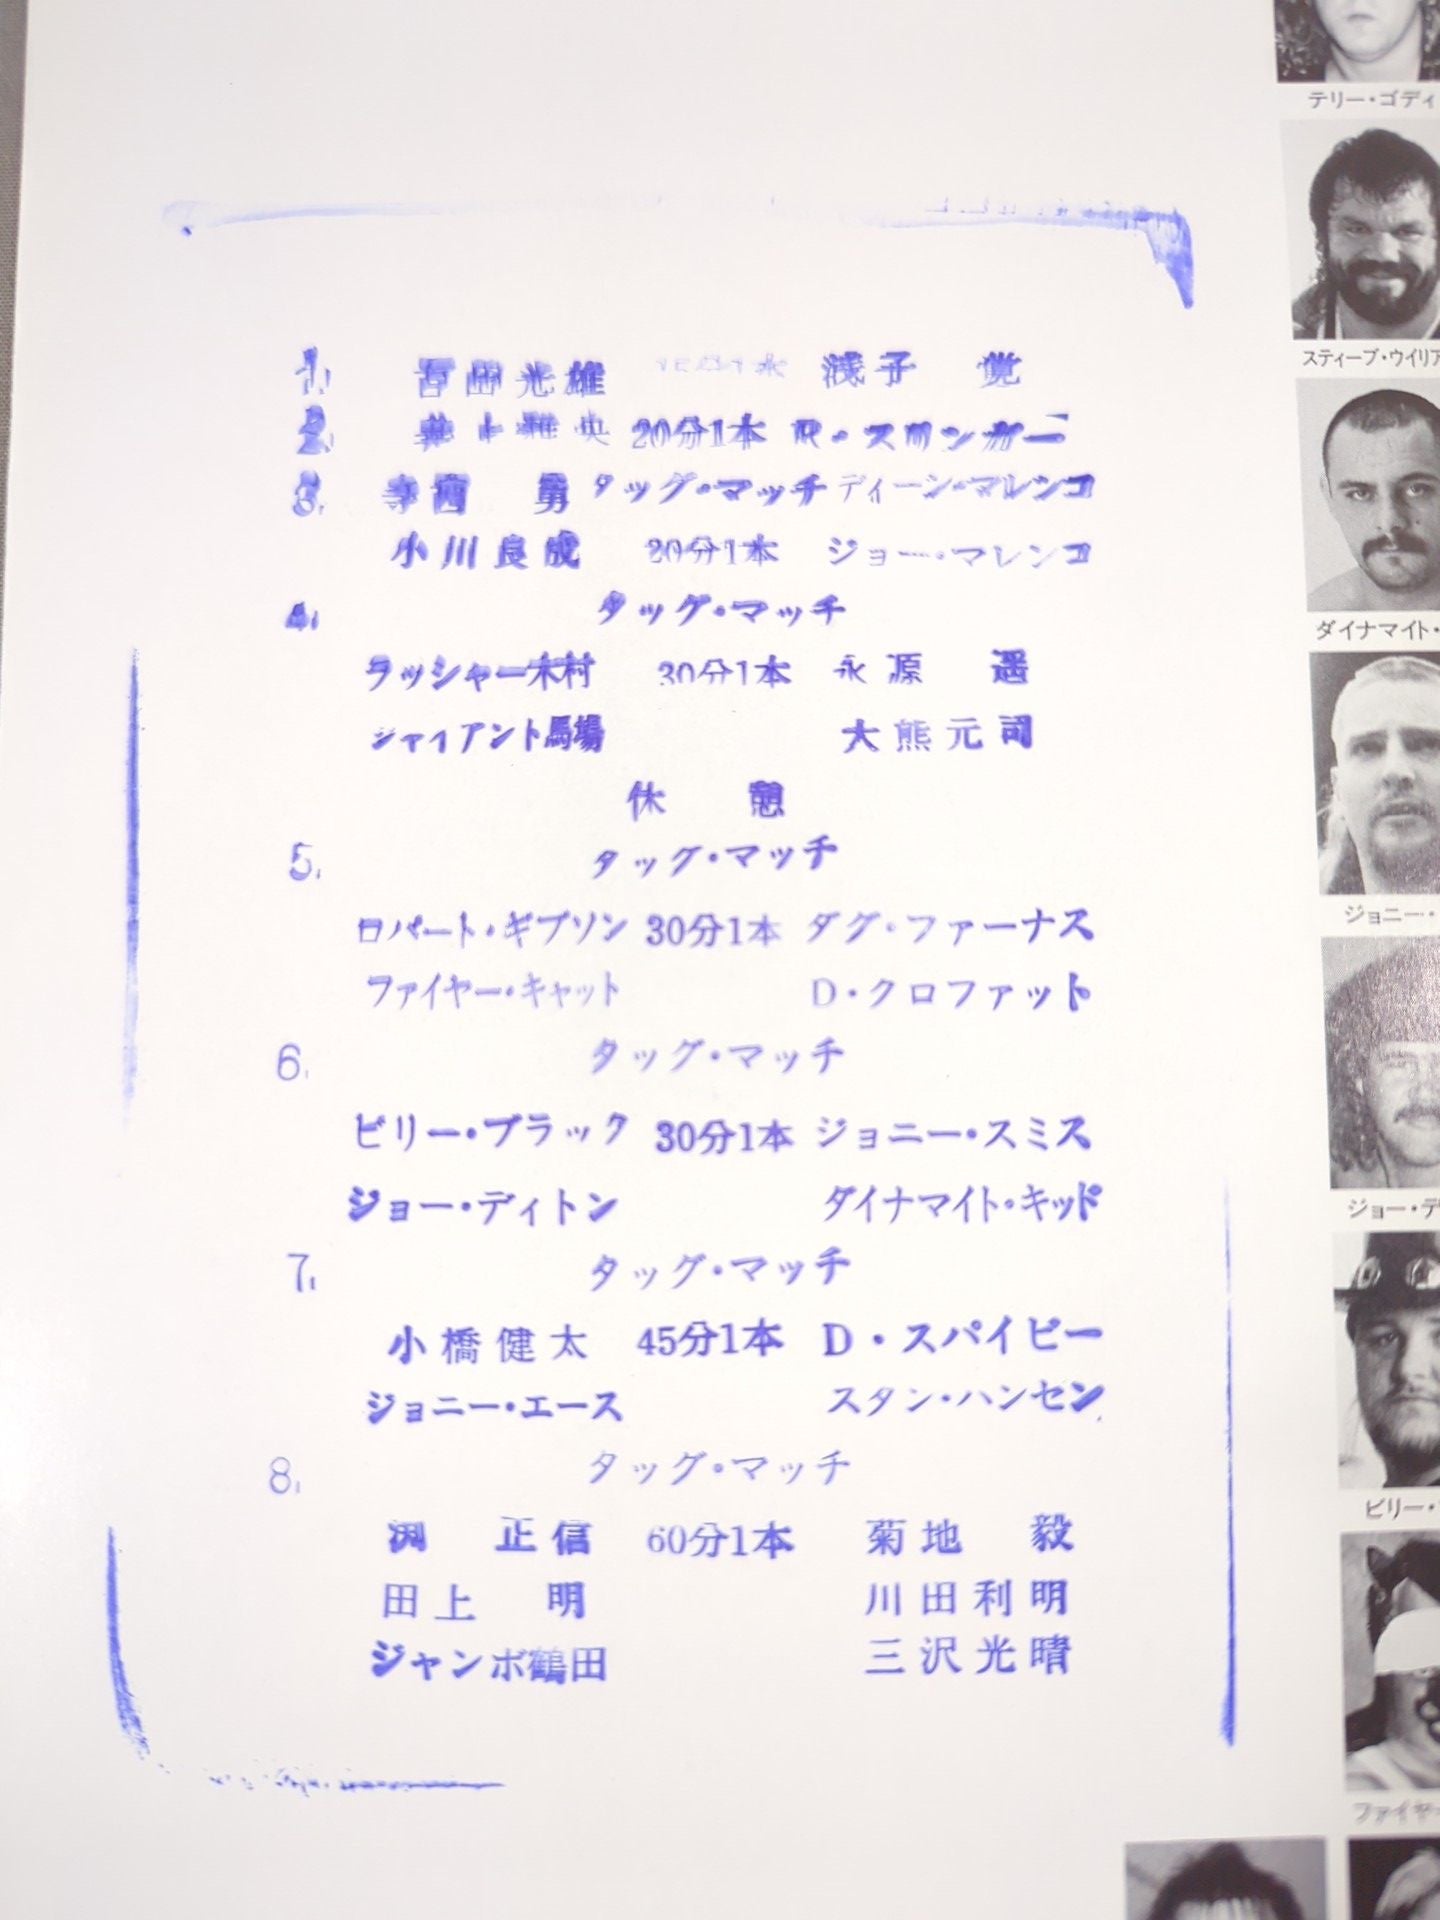 1. 百田光雄 15分1本 浅子 覚
2. 井上雅央 20分1本 R・スリンガー
3. 寺西 勇 タッグ・マッチ ディーン・マレンコ
小川良成 20分1本 ジョー・マレンコ
4. タッグ・マッチ
ラッシャー木村 30分1本 永源 遥
ジャイアント馬場 大熊元司
休 憩
5. タッグ・マッチ
ロバート・ギブソン 30分1本 ダグ・ファーナス
ファイヤー・キャット D・クロファット
6. タッグ・マッチ
ビリー・ブラック 30分1本 ジョニー・スミス
ジョー・ディトン ダイナマイト・キッド
7. タッグ・マッチ
小橋健太 45分1本 D・スパイビー
ジョニー・エース スタン・ハンセン
8. タッグ・マッチ
渕 正信 60分1本 菊地 毅
田上 明 川田利明
ジャンボ鶴田 三沢光晴
テリー・ゴディ
スティーブ・ウイリア
ダイナマイト・
ジョニー・
ジョー・デ
ビリー・
ファイヤ